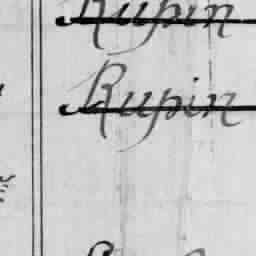 Rupin
Rupin